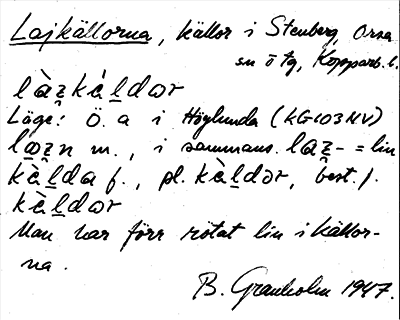 Lajkällorna, källor i Stenberg, Orsa
sn ö tg, Kopparb. l.
làz̰kɛ̀ḻdɷr
Läge: Ö. a i Höglunda (KG103NV)
lɷz̰n m., i sammans. laz̰- = lin
kɛ̀ḻda f., pl. kɛ̀ḻdər, best. f.
kɛ̀ḻdɷr
Man har förr rötat lin i källor-
na.
B. Granholm 1947.